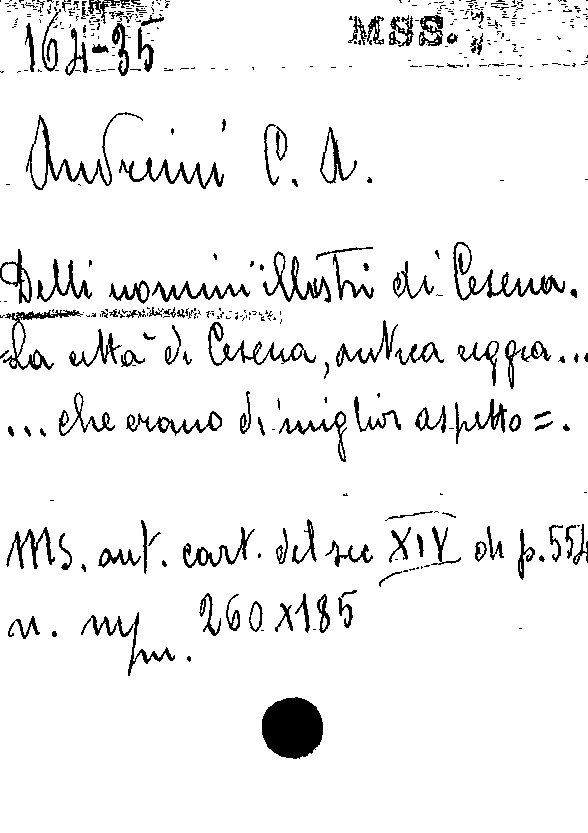 164-35 MSS.
Andreini C. A.
Delli uomini illustri di Cesena.
=La città di Cesena, antica reggia...
... che erano di miglior aspetto =.
MS. aut. cart. del sec XIV di p. 554
n. num. 260x185